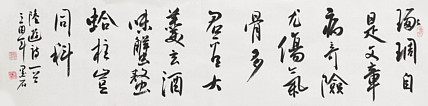 琢琱自
是文章
病奇險
尤傷氣
骨多
君看大
羹玄酒
味蟹螯
蛤柱豈
同科
陸游詩一首